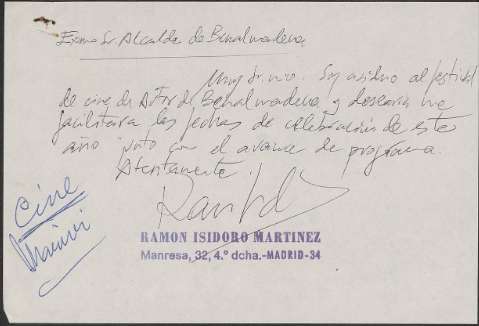 Exmo Sr. Alcalde de Benalmadena
Muy Sr. mio. Soy asiduo al festival
de cine de Autor de Benalmadena y desearia me
facilitara las fechas de celebración de este
año junto con el avance de programa.
Atentamente.
Cine
RAMON ISIDORO MARTINEZ
Manresa, 32, 4.º dcha.-MADRID-34